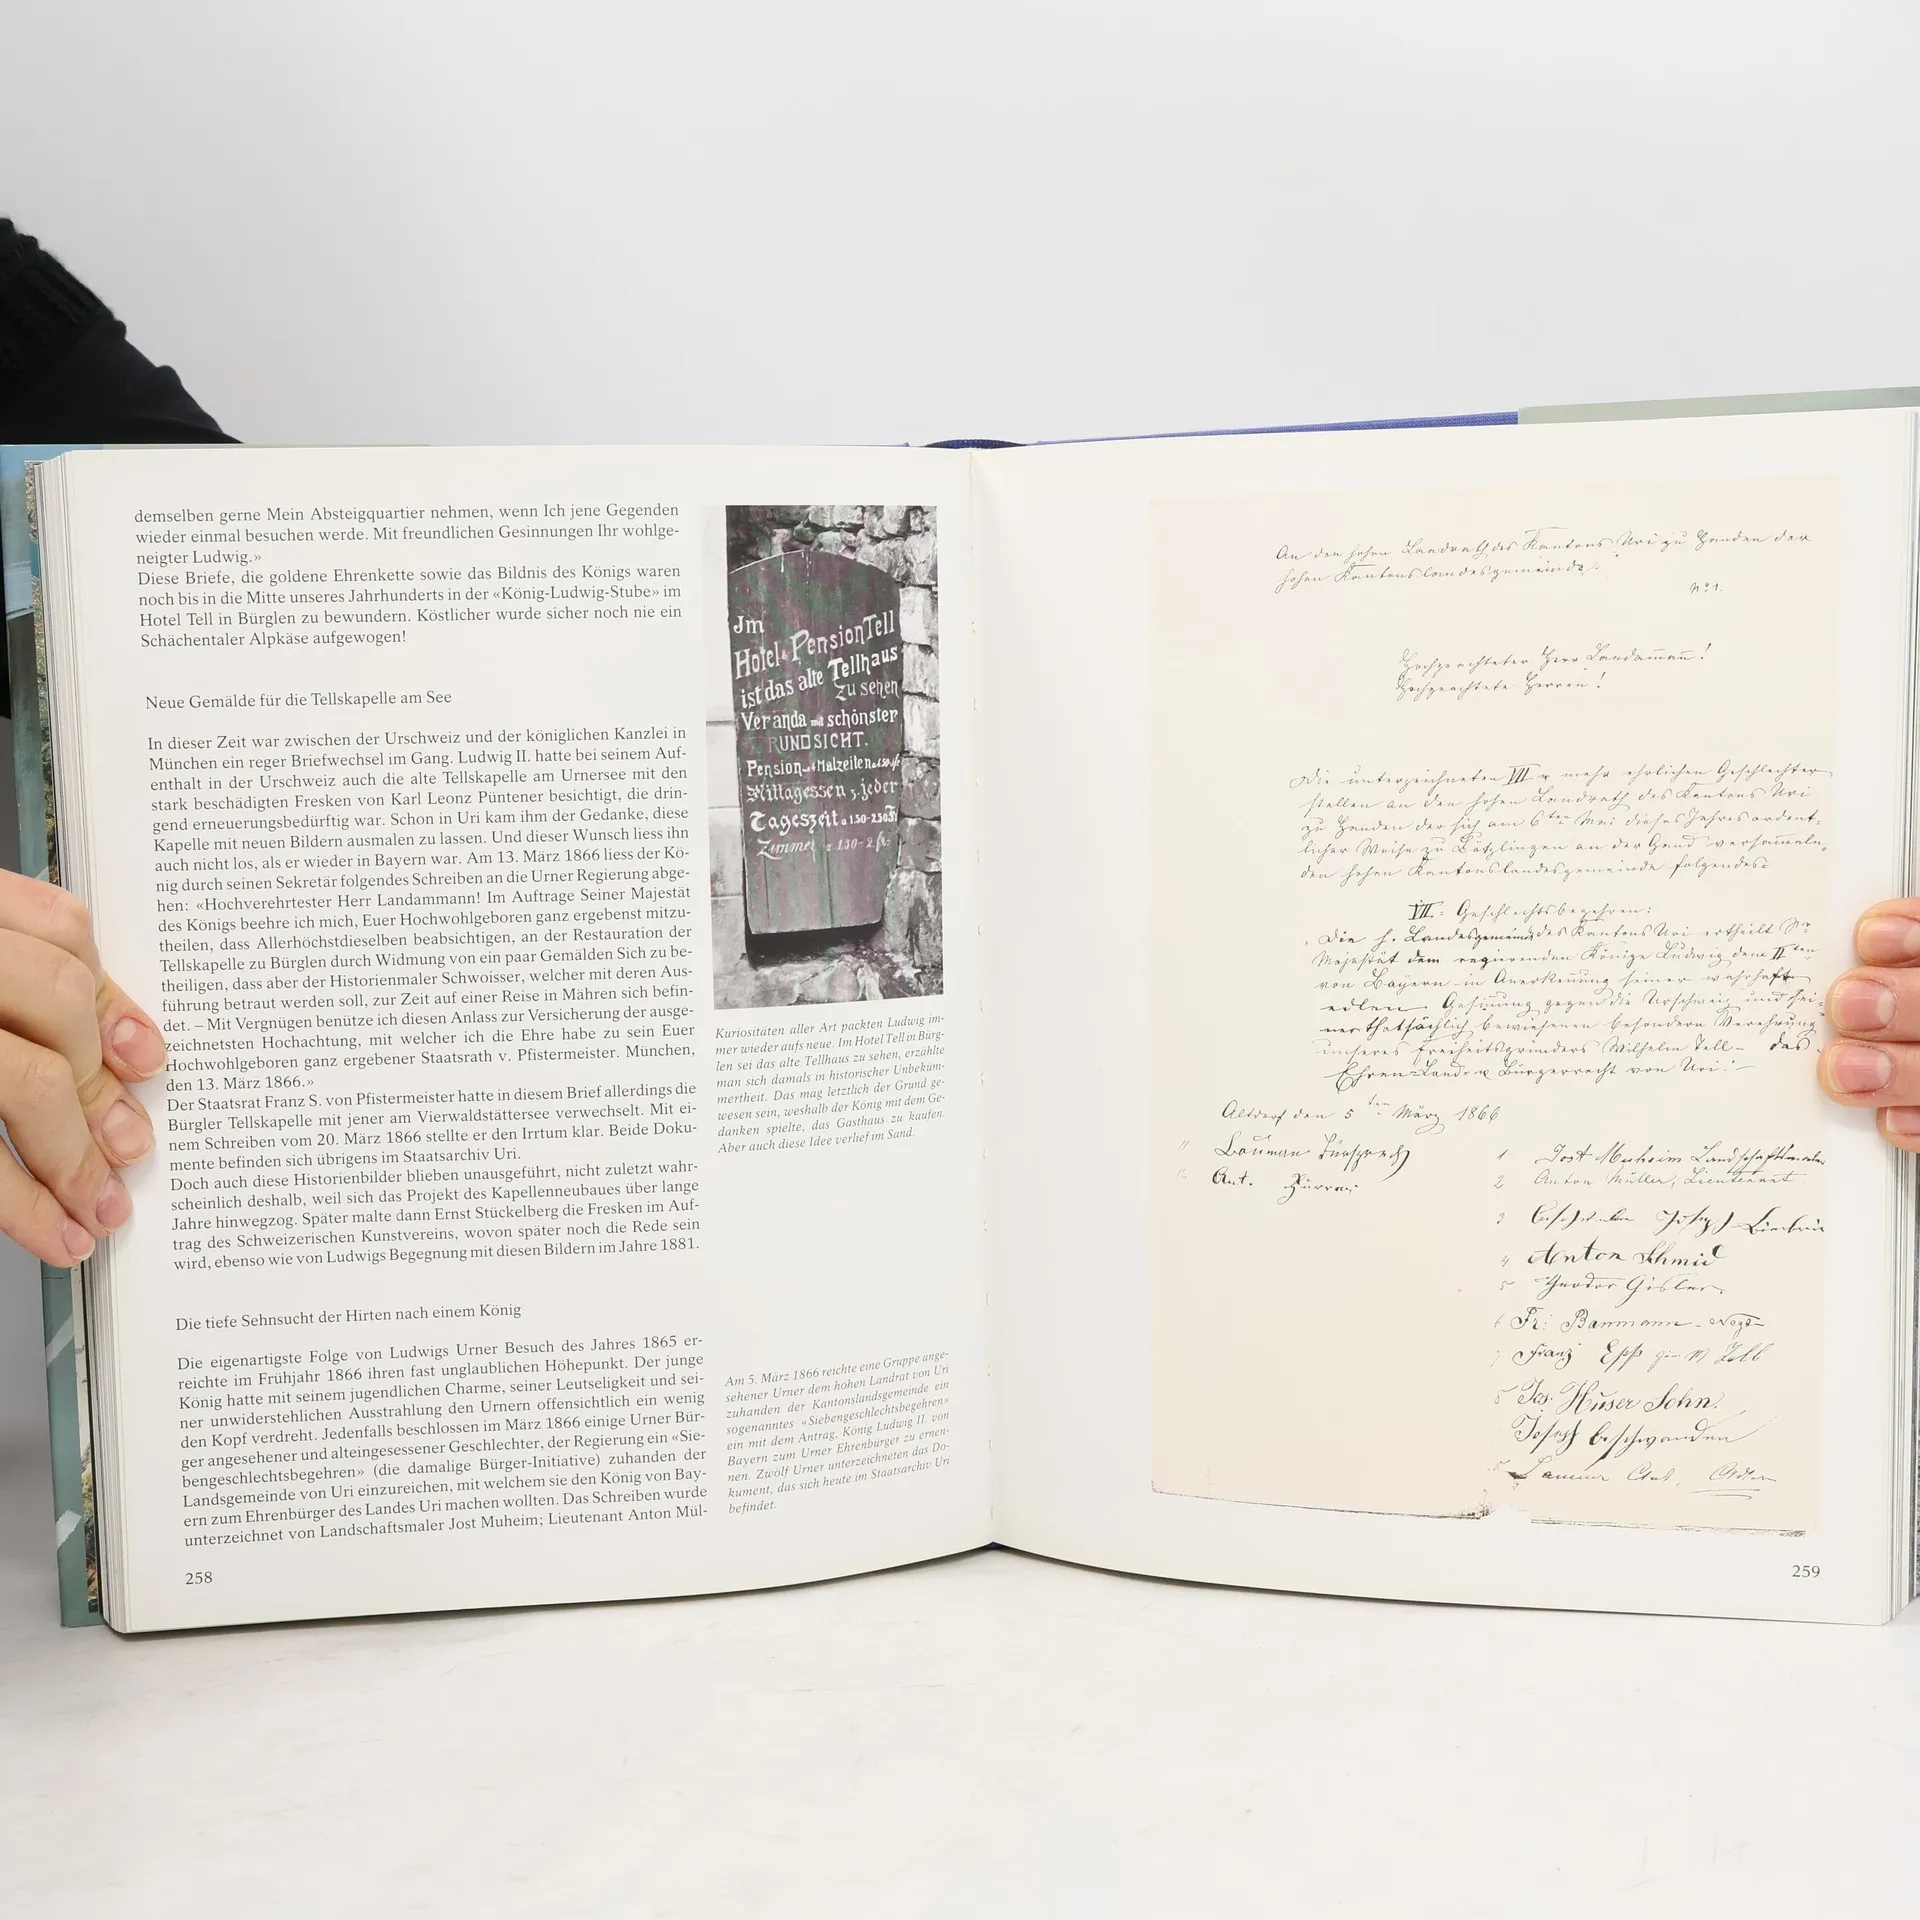 demselben gerne Mein Absteigquartier nehmen, wenn Ich jene Gegenden
wieder einmal besuchen werde. Mit freundlichen Gesinnungen Ihr wohlge-
neigter Ludwig.»
Diese Briefe, die goldene Ehrenkette sowie das Bildnis des Königs waren
noch bis in die Mitte unseres Jahrhunderts in der «König-Ludwig-Stube» im
Hotel Tell in Bürglen zu bewundern. Köstlicher wurde sicher noch nie ein
Schächentaler Alpkäse aufgewogen!
Neue Gemälde für die Tellskapelle am See
In dieser Zeit war zwischen der Urschweiz und der königlichen Kanzlei in
München ein reger Briefwechsel im Gang. Ludwig II. hatte bei seinem Auf-
enthalt in der Urschweiz auch die alte Tellskapelle am Urnersee mit den
stark beschädigten Fresken von Karl Leonz Püntener besichtigt, die drin-
gend erneuerungsbedürftig war. Schon in Uri kam ihm der Gedanke, diese
Kapelle mit neuen Bildern ausmalen zu lassen. Und dieser Wunsch liess ihn
auch nicht los, als er wieder in Bayern war. Am 13. März 1866 liess der Kö-
nig durch seinen Sekretär folgendes Schreiben an die Urner Regierung abge-
hen: «Hochverehrtester Herr Landammann! Im Auftrage Seiner Majestät
des Königs beehre ich mich, Euer Hochwohlgeboren ganz ergebenst mitzu-
theilen, dass Allerhöchstdieselben beabsichtigen, an der Restauration der
Tellskapelle zu Bürglen durch Widmung von ein paar Gemälden Sich zu be-
theiligen, dass aber der Historienmaler Schwoisser, welcher mit deren Aus-
führung betraut werden soll, zur Zeit auf einer Reise in Mähren sich befin-
det. – Mit Vergnügen benütze ich diesen Anlass zur Versicherung der ausge-
zeichnetsten Hochachtung, mit welcher ich die Ehre habe zu sein Euer
Hochwohlgeboren ganz ergebener Staatsrath v. Pfistermeister. München,
den 13. März 1866.»
Der Staatsrat Franz S. von Pfistermeister hatte in diesem Brief allerdings die
Bürgler Tellskapelle mit jener am Vierwaldstättersee verwechselt. Mit ei-
nem Schreiben vom 20. März 1866 stellte er den Irrtum klar. Beide Doku-
mente befinden sich übrigens im Staatsarchiv Uri.
Doch auch diese Historienbilder blieben unausgeführt, nicht zuletzt wahr-
scheinlich deshalb, weil sich das Projekt des Kapellenneubaues über lange
Jahre hinwegzog. Später malte dann Ernst Stückelberg die Fresken im Auf-
trag des Schweizerischen Kunstvereins, wovon später noch die Rede sein
wird, ebenso wie von Ludwigs Begegnung mit diesen Bildern im Jahre 1881.
Die tiefe Sehnsucht der Hirten nach einem König
Die eigenartigste Folge von Ludwigs Urner Besuch des Jahres 1865 er-
reichte im Frühjahr 1866 ihren fast unglaublichen Höhepunkt. Der junge
König hatte mit seinem jugendlichen Charme, seiner Leutseligkeit und sei-
ner unwiderstehlichen Ausstrahlung den Urnern offensichtlich ein wenig
den Kopf verdreht. Jedenfalls beschlossen im März 1866 einige Urner Bür-
ger angesehener und alteingesessener Geschlechter, der Regierung ein «Sie-
bengeschlechtsbegehren» (die damalige Bürger-Initiative) zuhanden der
Landsgemeinde von Uri einzureichen, mit welchem sie den König von Bay-
ern zum Ehrenbürger des Landes Uri machen wollten. Das Schreiben wurde
unterzeichnet von Landschaftsmaler Jost Muheim; Lieutenant Anton Mül-
258
Jm
Hotel & Pension Tell
ist das alte Tellhaus
zu sehen
Veranda mit schönster
RUNDSICHT.
Pension
Mittagessen z. jeder
Tageszeit a 1.50-2.50 Fr
Zimmer a 1.50-2.fr.
Kuriositäten aller Art packten Ludwig im-
mer wieder aufs neue. Im Hotel Tell in Bürg-
len sei das alte Tellhaus zu sehen, erzählte
man sich damals in historischer Unbeküm-
mertheit. Das mag letztlich der Grund ge-
wesen sein, weshalb der König mit dem Ge-
danken spielte, das Gasthaus zu kaufen.
Aber auch diese Idee verlief im Sand.
Am 5. März 1866 reichte eine Gruppe ange-
sehener Urner dem hohen Landrat von Uri
zuhanden der Kantonslandsgemeinde ein
sogenanntes «Siebengeschlechtsbegehren»
ein mit dem Antrag, König Ludwig II. von
Bayern zum Urner Ehrenbürger zu ernen-
nen. Zwölf Urner unterzeichneten das Do-
kument, das sich heute im Staatsarchiv Uri
befindet.
An den hohen Landrath des Kantons Uri zu Handen der
hohen Kantonslandesgemeinde.
Nº 1.
Hochgeachteter Herr Landamann!
Hochgeachtete Herren!
Die unterzeichneten VII u mehr ehrlichen Geschlechter
stellen an den hohen Landrath des Kantons Uri
zu Handen der sich am 6ten Mai dieses Jahres ordent-
licher Weise zu Bötzlingen an der Gand versammeln-
den hohen Kantonslandesgemeinde folgendes:
VII. Geschlechtsbegehren:
Die h. Landesgemeinde des Kantons Uri ertheilt Sr
Majestät dem regierenden Könige Ludwig dem IIten
von Bayern in Anerkennung seiner wahrhaft
edlen Gesinnung gegen die Urschweiz und sei-
ner thatsächlich bewiesenen besondern Verehrung
unseres Freiheitsgründers Wilhelm Tell – das
Ehren-Land- u Bürgerrecht von Uri.
Altdorf den 5ten März 1866
11 Fürsprech
12 Ant.
1 Jost Muheim Landschaftsmaler
2 Anton Müller, Lieutenant.
3 Joseph
4 Anton Schmid
5 Theodor Gisler.
6 Fr:
7 Franz Epp
8 Jos. Huser Sohn.
Joseph Gschwanden
259